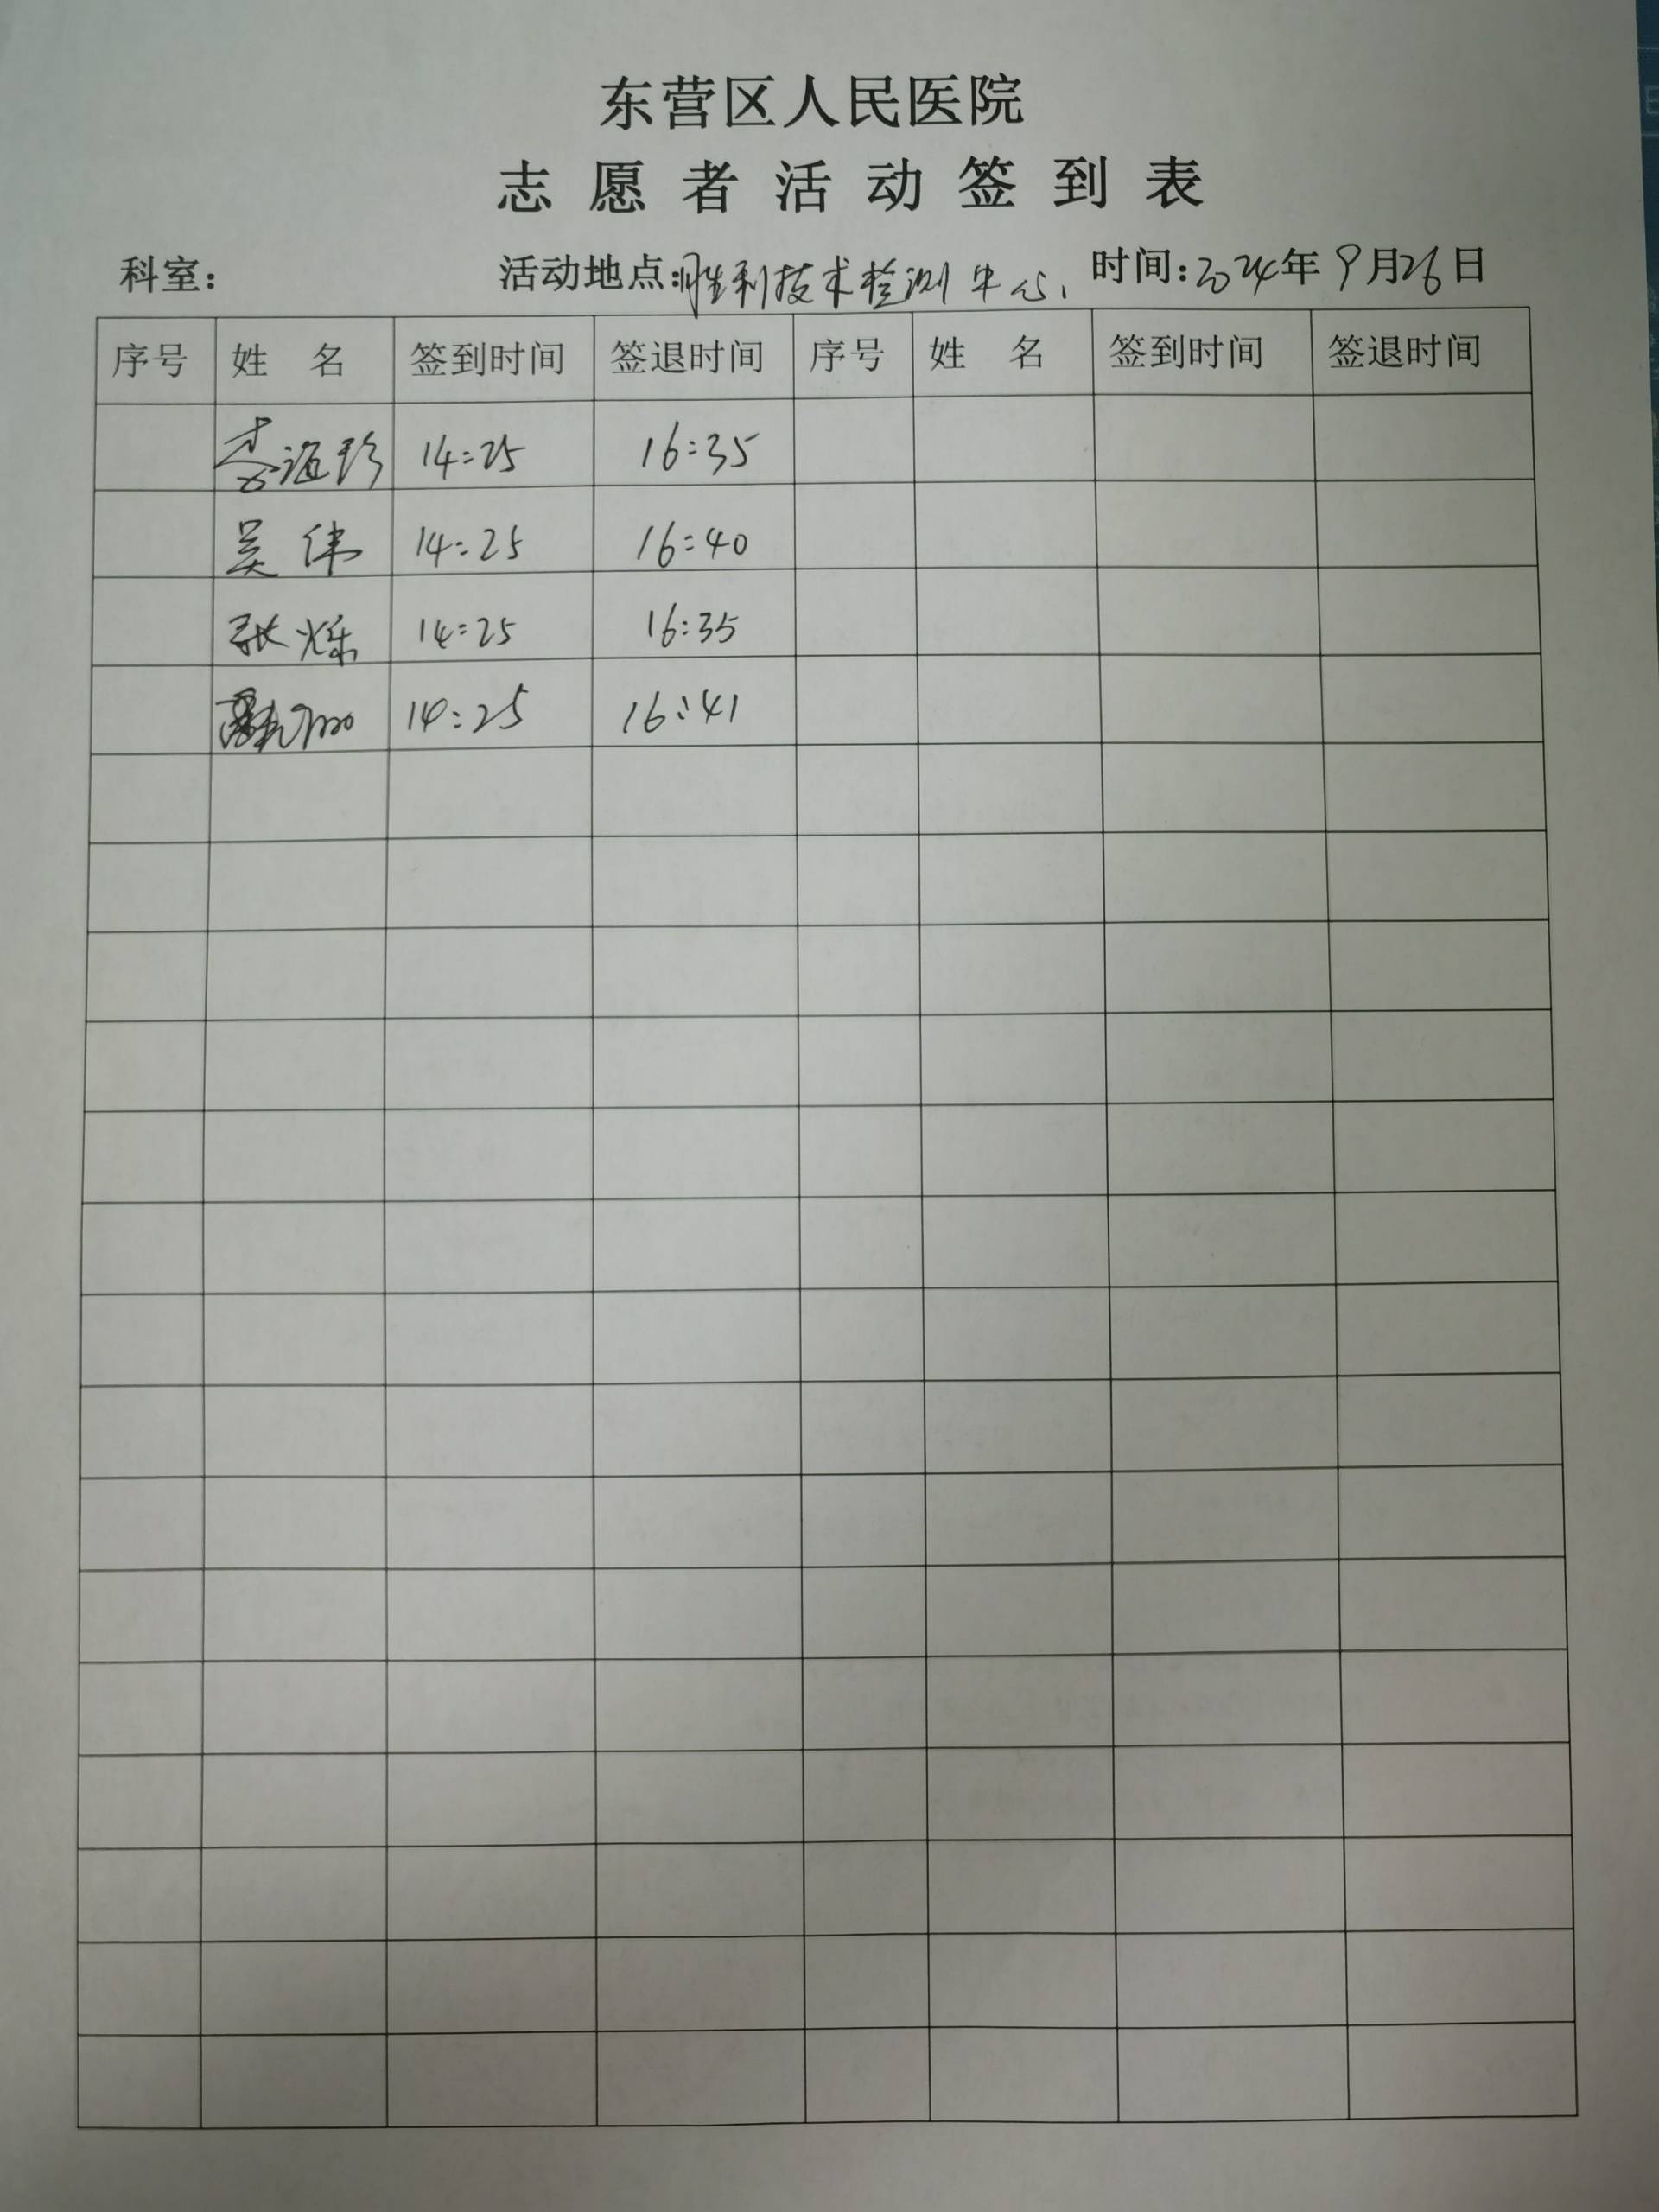 东营区人民医院
志愿者活动签到表
科室： 活动地点：胜利技术检测中心 时间：2024年9月26日
序号 姓 名 签到时间 签退时间 序号 姓 名 签到时间 签退时间
李海珍 14:25 16:35
吴伟 14:25 16:40
张烁 14:25 16:35
14:25 16:41